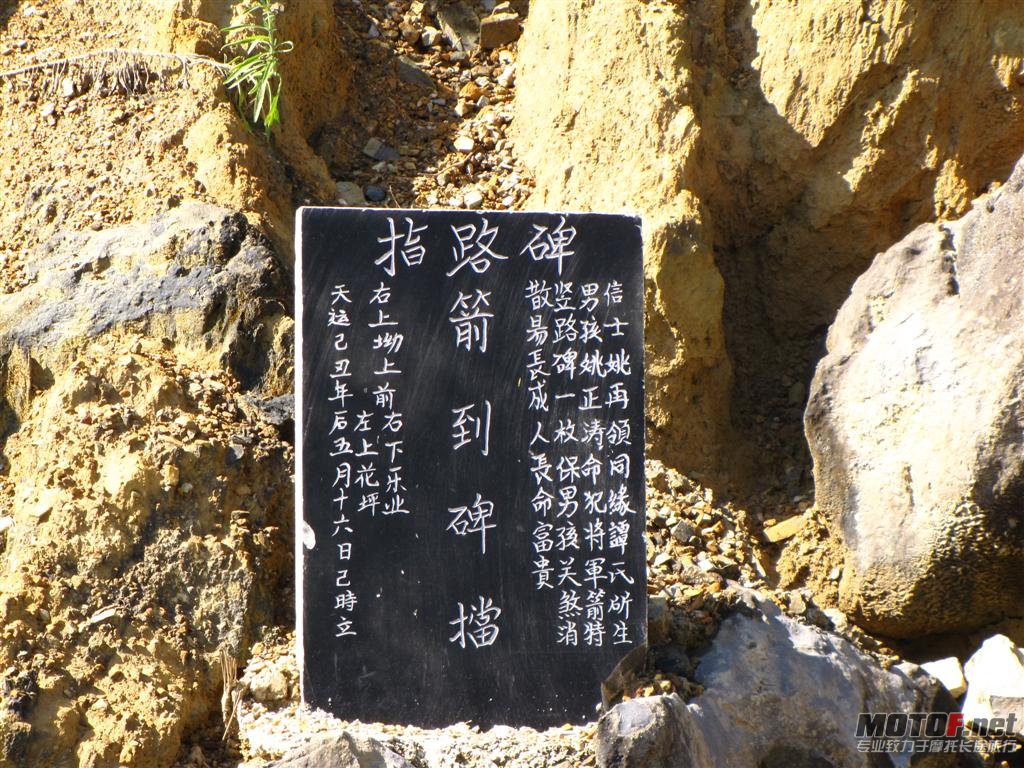 指路碑
信士姚再領同緣譚氏所生
男孩姚正涛命犯将軍箭特
竖路碑一枚保男孩关煞消
散易長成人長命富貴
箭到碑擋
右上坳上前右下乐业
左上花坪
天运己丑年后五月十六日己時立
MOTOF.net
专业致力于摩托长途旅行